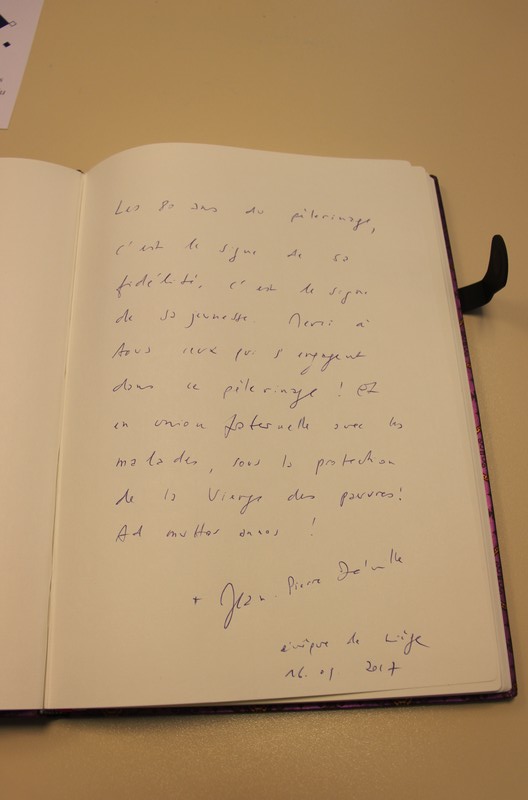 Les 80 ans du pèlerinage,
c'est le signe de sa
fidélité, c'est le signe
de sa jeunesse. Merci à
tous ceux qui s'engagent
dans ce pèlerinage ! Et
en union fraternelle avec les
malades, sous la protection
de la Vierge des pauvres !
Ad multos annos !
+ Jean-Pierre Delville
évêque de Liège
16.09.2017